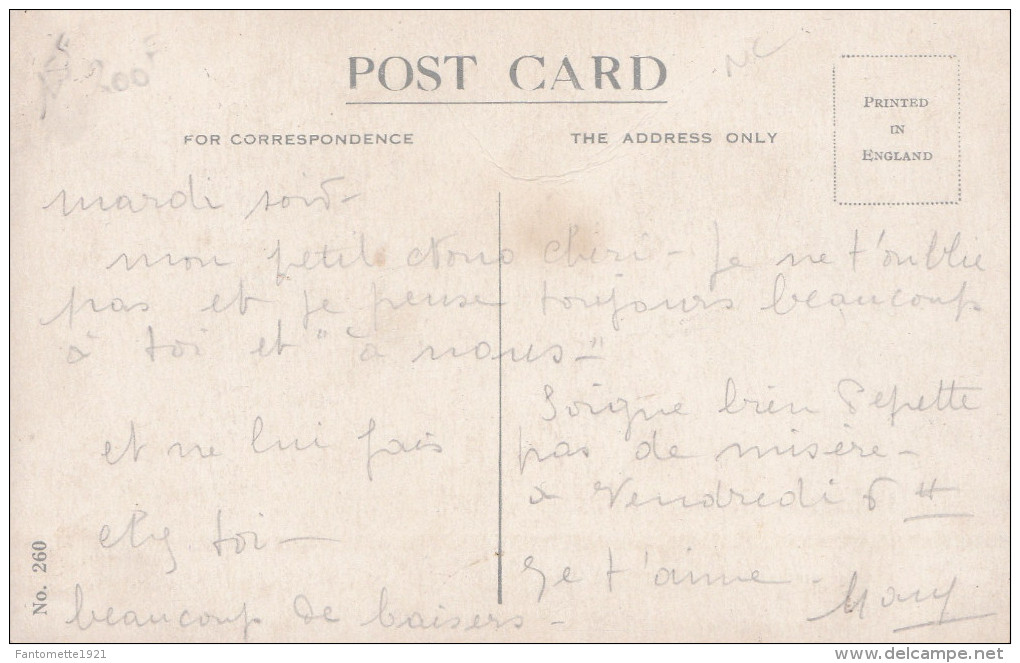 200F
POST CARD
FOR CORRESPONDENCE
THE ADDRESS ONLY
PRINTED
IN
ENGLAND
mardi soir
mon petit chéri - Je ne t'oublie
pas et je pense toujours beaucoup
à toi et "à nous"
Soigne bien Pepette
et ne lui fais pas de misère -
à Vendredi 6 H
chez toi —
Je t'aime -
beaucoup de baisers -
No. 260
Fantomette1921
delcampe.net